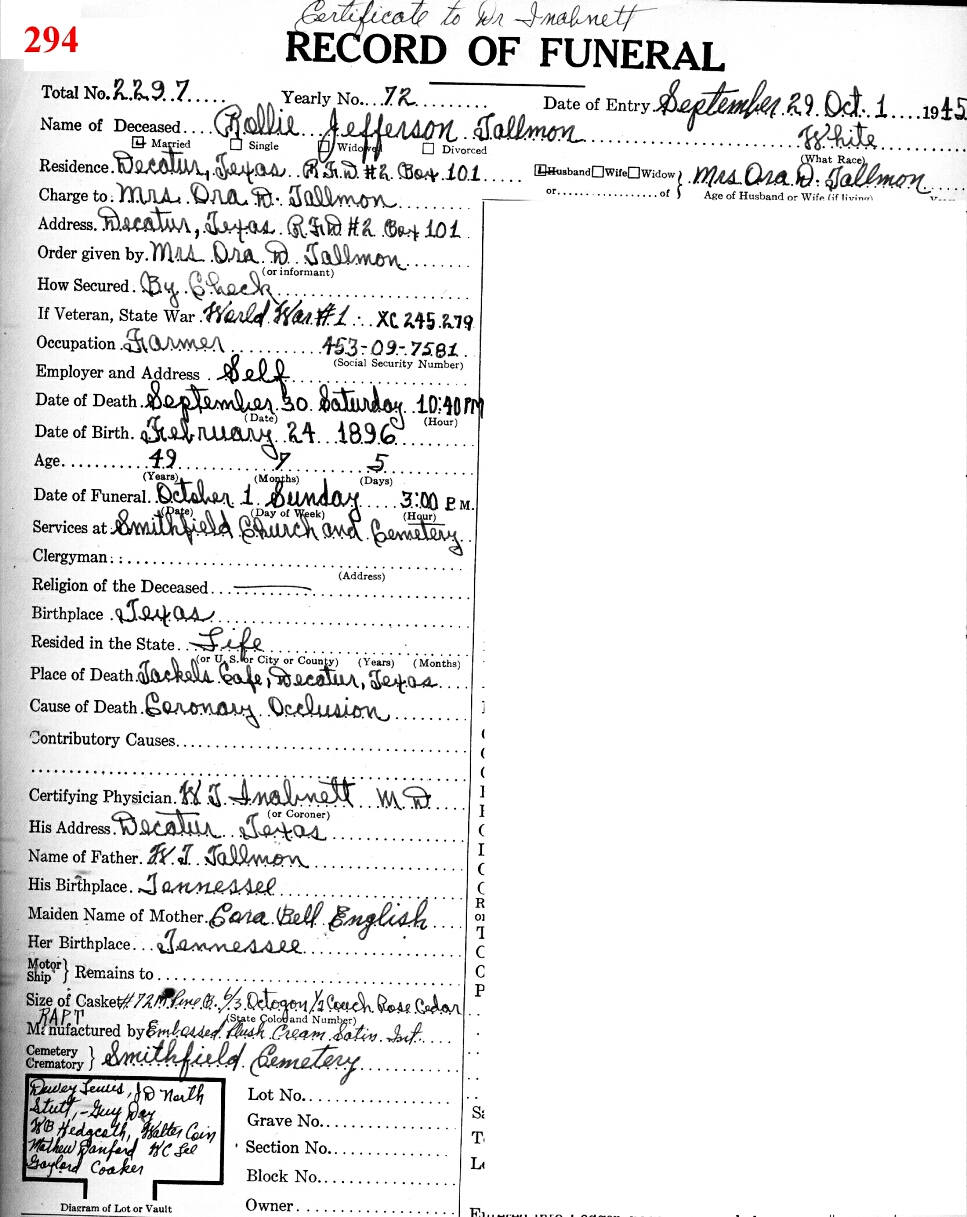 Certificate to Dr Inabnett
294
RECORD OF FUNERAL
Total No. 2297 Yearly No. 72 Date of Entry September 29 Oct. 1 1945
Name of Deceased Rollie Jefferson Tallmon White
Married Single Widowed Divorced (What Race)
Residence Decatur, Texas R.F.D #2 Box 101 Husband Wife Widow or of } Mrs Ora D. Tallmon
Age of Husband or Wife (if living)
Charge to Mrs. Ora D. Tallmon
Address Decatur, Texas R.F.D #2 Box 101
Order given by Mrs Ora D Tallmon
(or informant)
How Secured By Check
If Veteran, State War World War #1 XC 245.279
Occupation Farmer 453-09-7581
(Social Security Number)
Employer and Address Self
Date of Death September 30 Saturday 10:40 PM
(Date) (Hour)
Date of Birth February 24 1896
Age 49 7 5
(Years) (Months) (Days)
Date of Funeral October 1 Sunday 3:00 P.M.
(Date) (Day of Week) (Hour)
Services at Smithfield Church and Cemetery
Clergyman
(Address)
Religion of the Deceased
Birthplace Texas
Resided in the State Life
(or U. S. or City or County) (Years) (Months)
Place of Death Jackels Cafe, Decatur, Texas
Cause of Death Coronary Occlusion
Contributory Causes
Certifying Physician W T Inabnett M D
(or Coroner)
His Address Decatur Texas
Name of Father W. T. Tallmon
His Birthplace Tennessee
Maiden Name of Mother Cora Bell English
Her Birthplace Tennessee
Motor Ship } Remains to
Size of Casket # 72 Pine 6/3 Octogon 1/2 Couch Rose Cedar
RAPT (State Color and Number)
Manufactured by Embossed Plush Cream Satin Int.
Cemetery Crematory } Smithfield Cemetery
Dewey Lewis, JD North
Stutt, - Guy Day
WB Hedgcoth, Walter Cain
Mathew Sanford WC Lee
Gaylord Coaker
Lot No.
Grave No.
Section No.
Block No.
Owner
Diagram of Lot or Vault